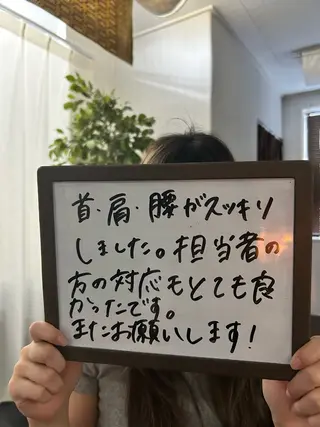 首・肩・腰がスッキリ
しました。担当者の
方の対応もとても良
かったです。
またお願いします!